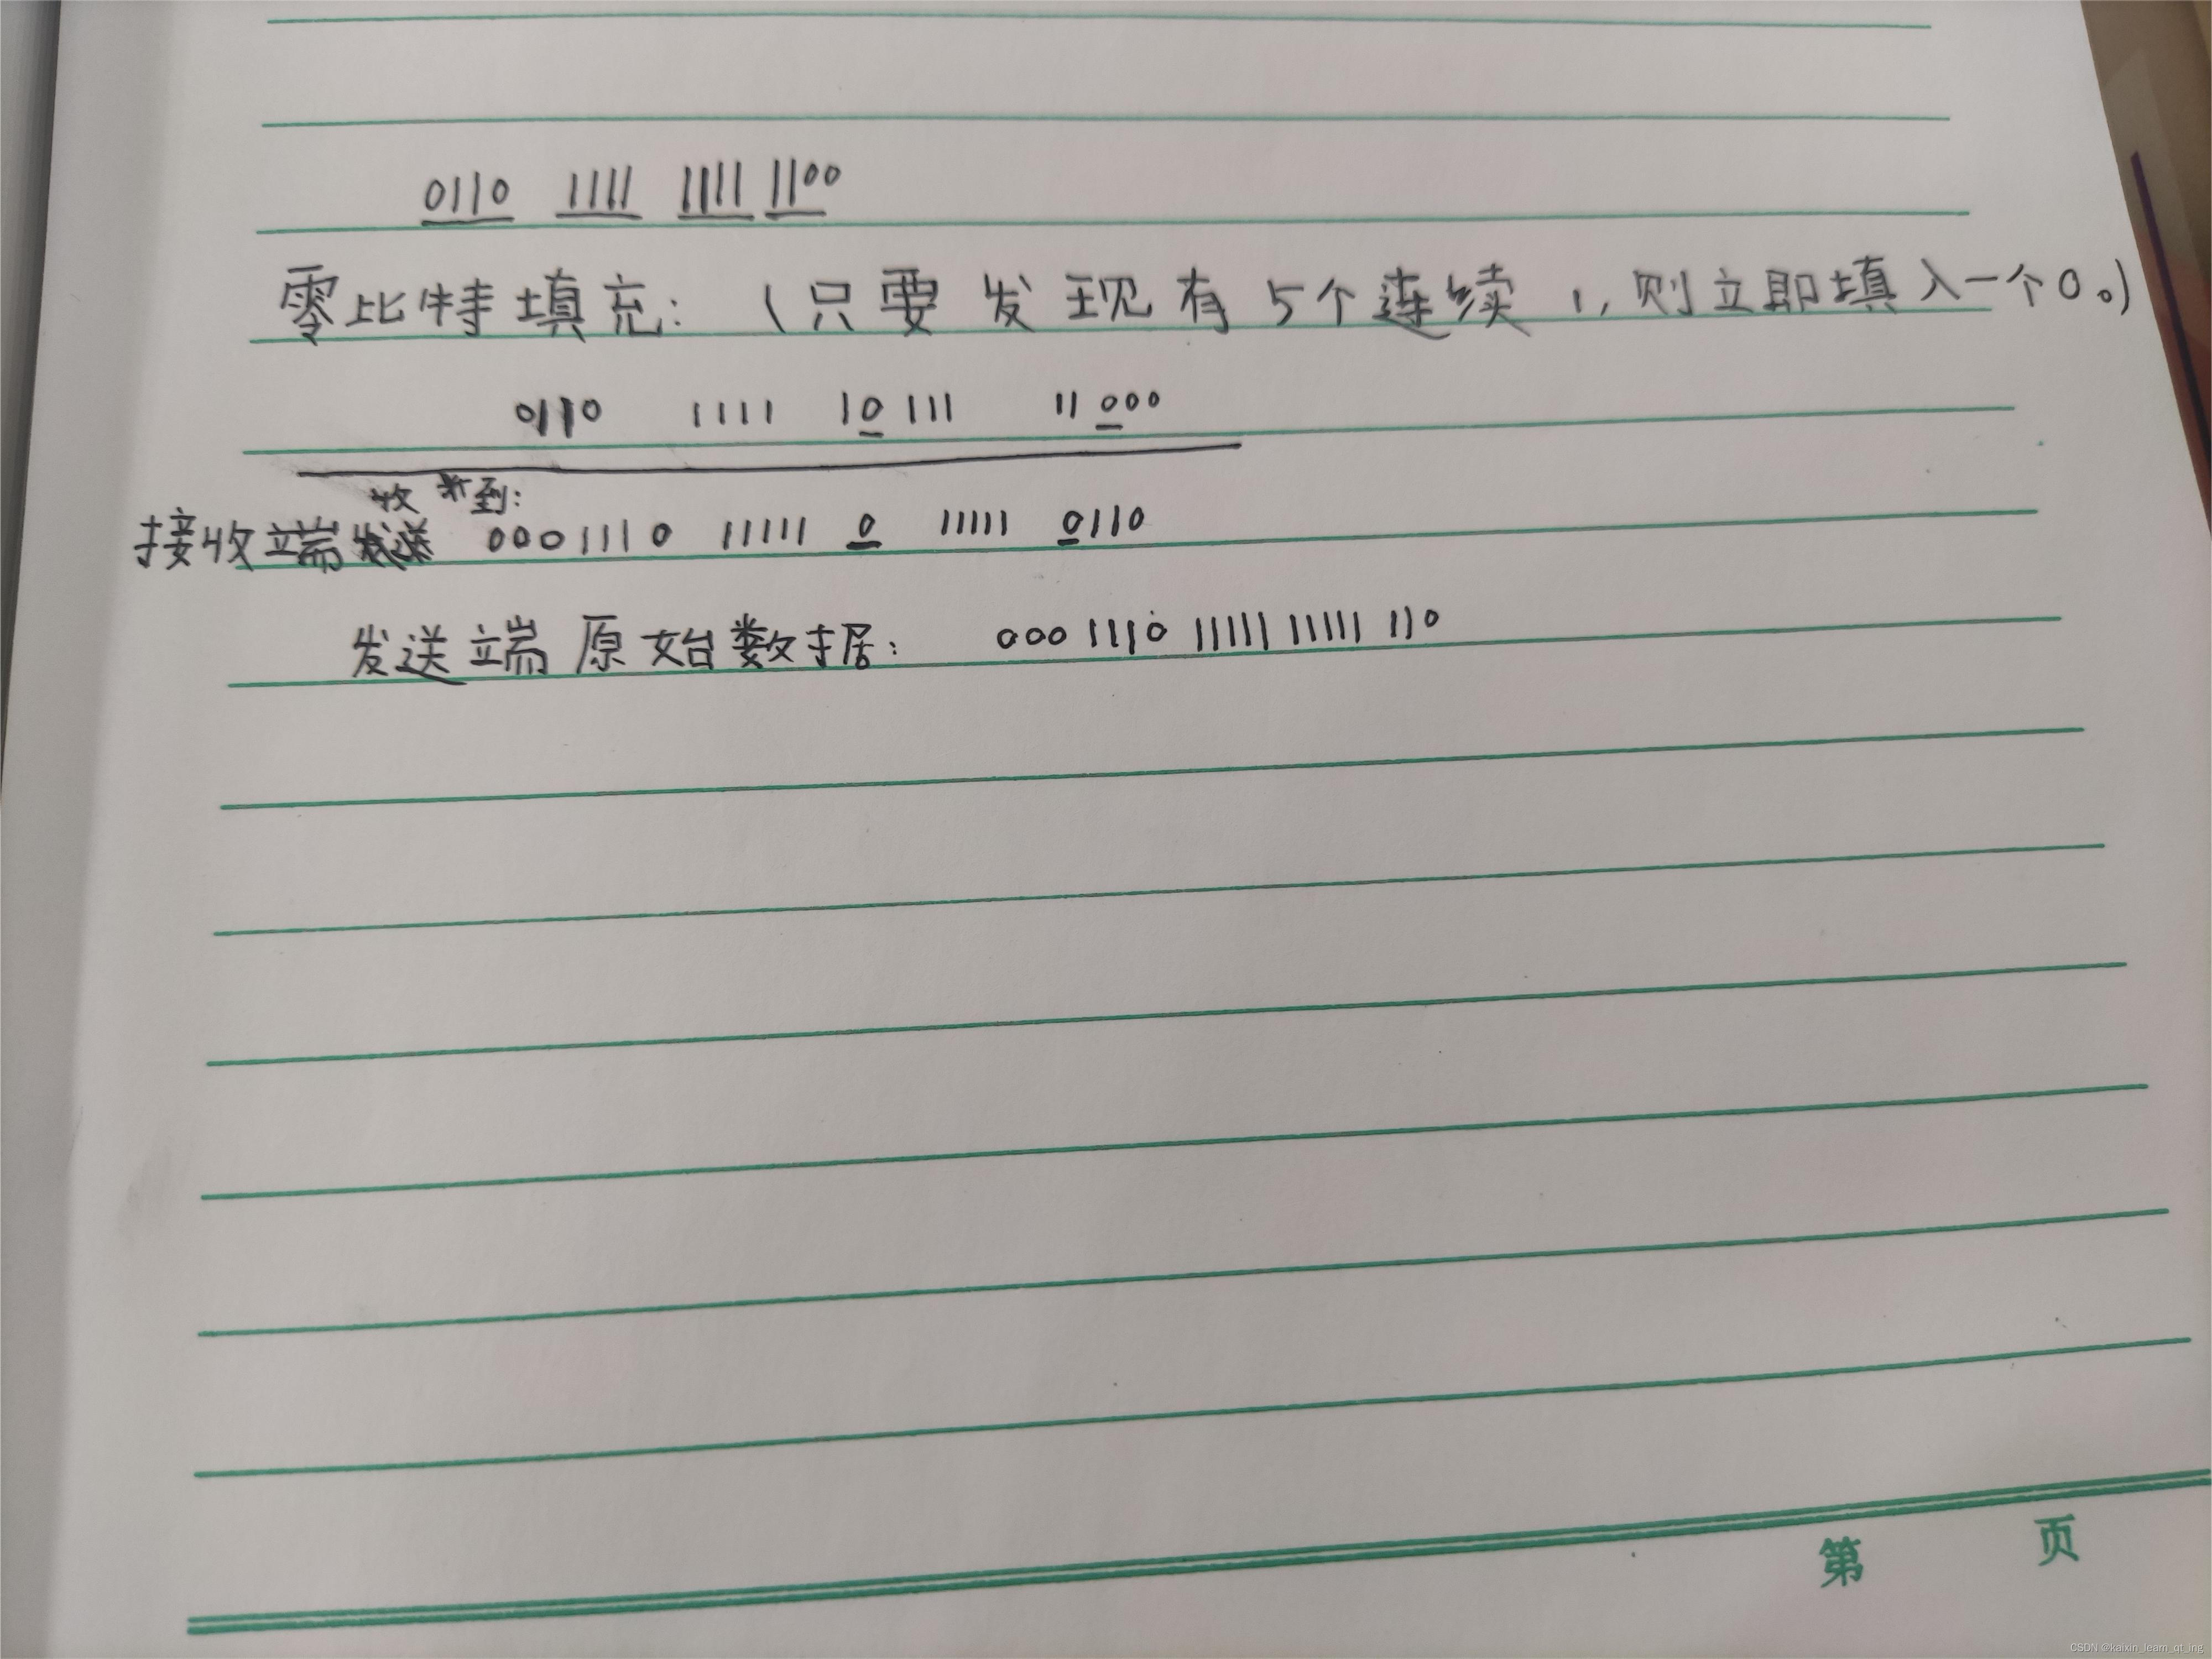 0110 1111 1111 1100
零比特填充:(只要发现有5个连续1,则立即填入一个0。)
0110 1111 10111 11000
收到:
接收端 0001110 11111 0 11111 0110
发送端原始数据: 0001110 11111 11111 110
第 页
CSDN @kaixin_learn_qt_ing